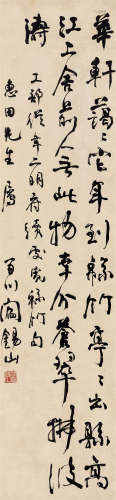 華軒藹々它年到綿竹亭々出縣高
江上舍前無此物幸分蒼翠拂波
濤
工部從韋二明府續處覓綿竹句
惠田先生屬
百川閻錫山